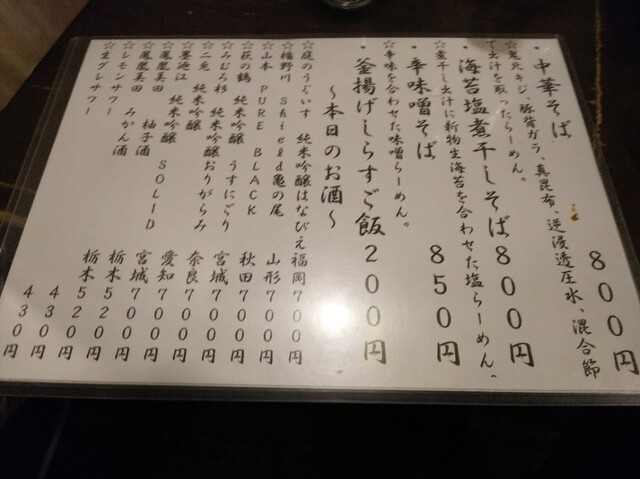 ・中華そば 800円
☆鬼北キジ、豚背ガラ、真昆布、逆浸透圧水、混合節
で出汁を取ったらーめん。
・海苔塩煮干しそば 800円
☆煮干し出汁に新物生海苔を合わせた塩らーめん。
・辛味噌そば 850円
☆辛味を合わせた味噌らーめん。
・釜揚げしらすご飯 200円
～本日のお酒～
☆庭のうぐいす 純米吟醸はなびえ 福岡 700円
☆楯野川 Shield亀の尾 山形 700円
☆山本 PURE BLACK 秋田 700円
☆萩の鶴 純米吟醸 うすにごり 宮城 700円
☆みむろ杉 純米吟醸おりがらみ 奈良 700円
☆二兎 純米吟醸 愛知 700円
☆墨廼江 純米吟醸 宮城 700円
☆鳳凰美田 純米吟醸 SOLID 栃木 520円
☆鳳凰美田 柚子酒 栃木 520円
みかん酒
☆レモンサワー 430円
☆生グレサワー 430円